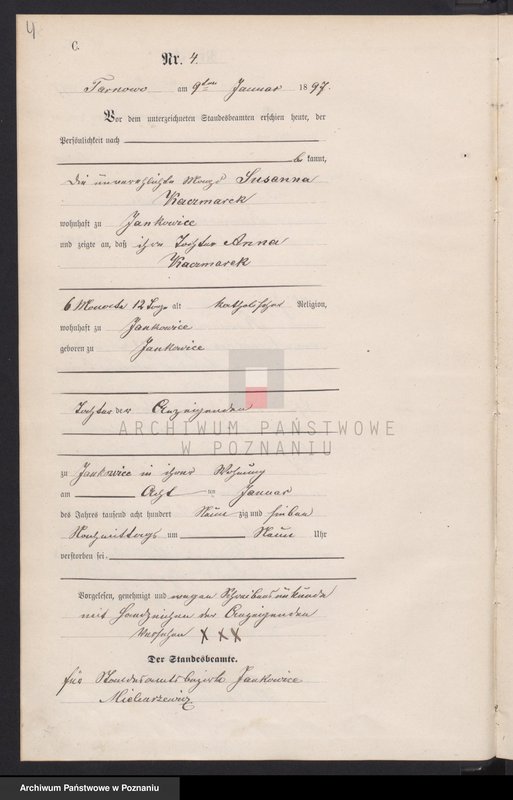 4
C.
Nr. 4.
Tarnowo am 9ten Januar 1897.
Vor dem unterzeichneten Standesbeamten erschien heute, der
Persönlichkeit nach
be kannt,
die unverehelichte Magd Susanna
Kaczmarek
wohnhaft zu Jankowice
und zeigte an, daß ihre Tochter Anna
Kaczmarek
6 Monate 12 Tage alt katholischer Religion,
wohnhaft zu Jankowice
geboren zu Jankowice
Tochter der Anzeigenden
ARCHIWUM PAŃSTWOWE
W POZNANIU
zu Jankowice in ihrer Wohnung
am Acht ten Januar
des Jahres tausend acht hundert Neun zig und sieben
Nachmittags um Neun Uhr
verstorben sei.
Vorgelesen, genehmigt und wegen Schreibensunkunde
mit Handzeichen der Anzeigenden
versehen X X X
Der Standesbeamte.
für Standesamtsbezirk Jankowice
Archiwum Państwowe w Poznaniu